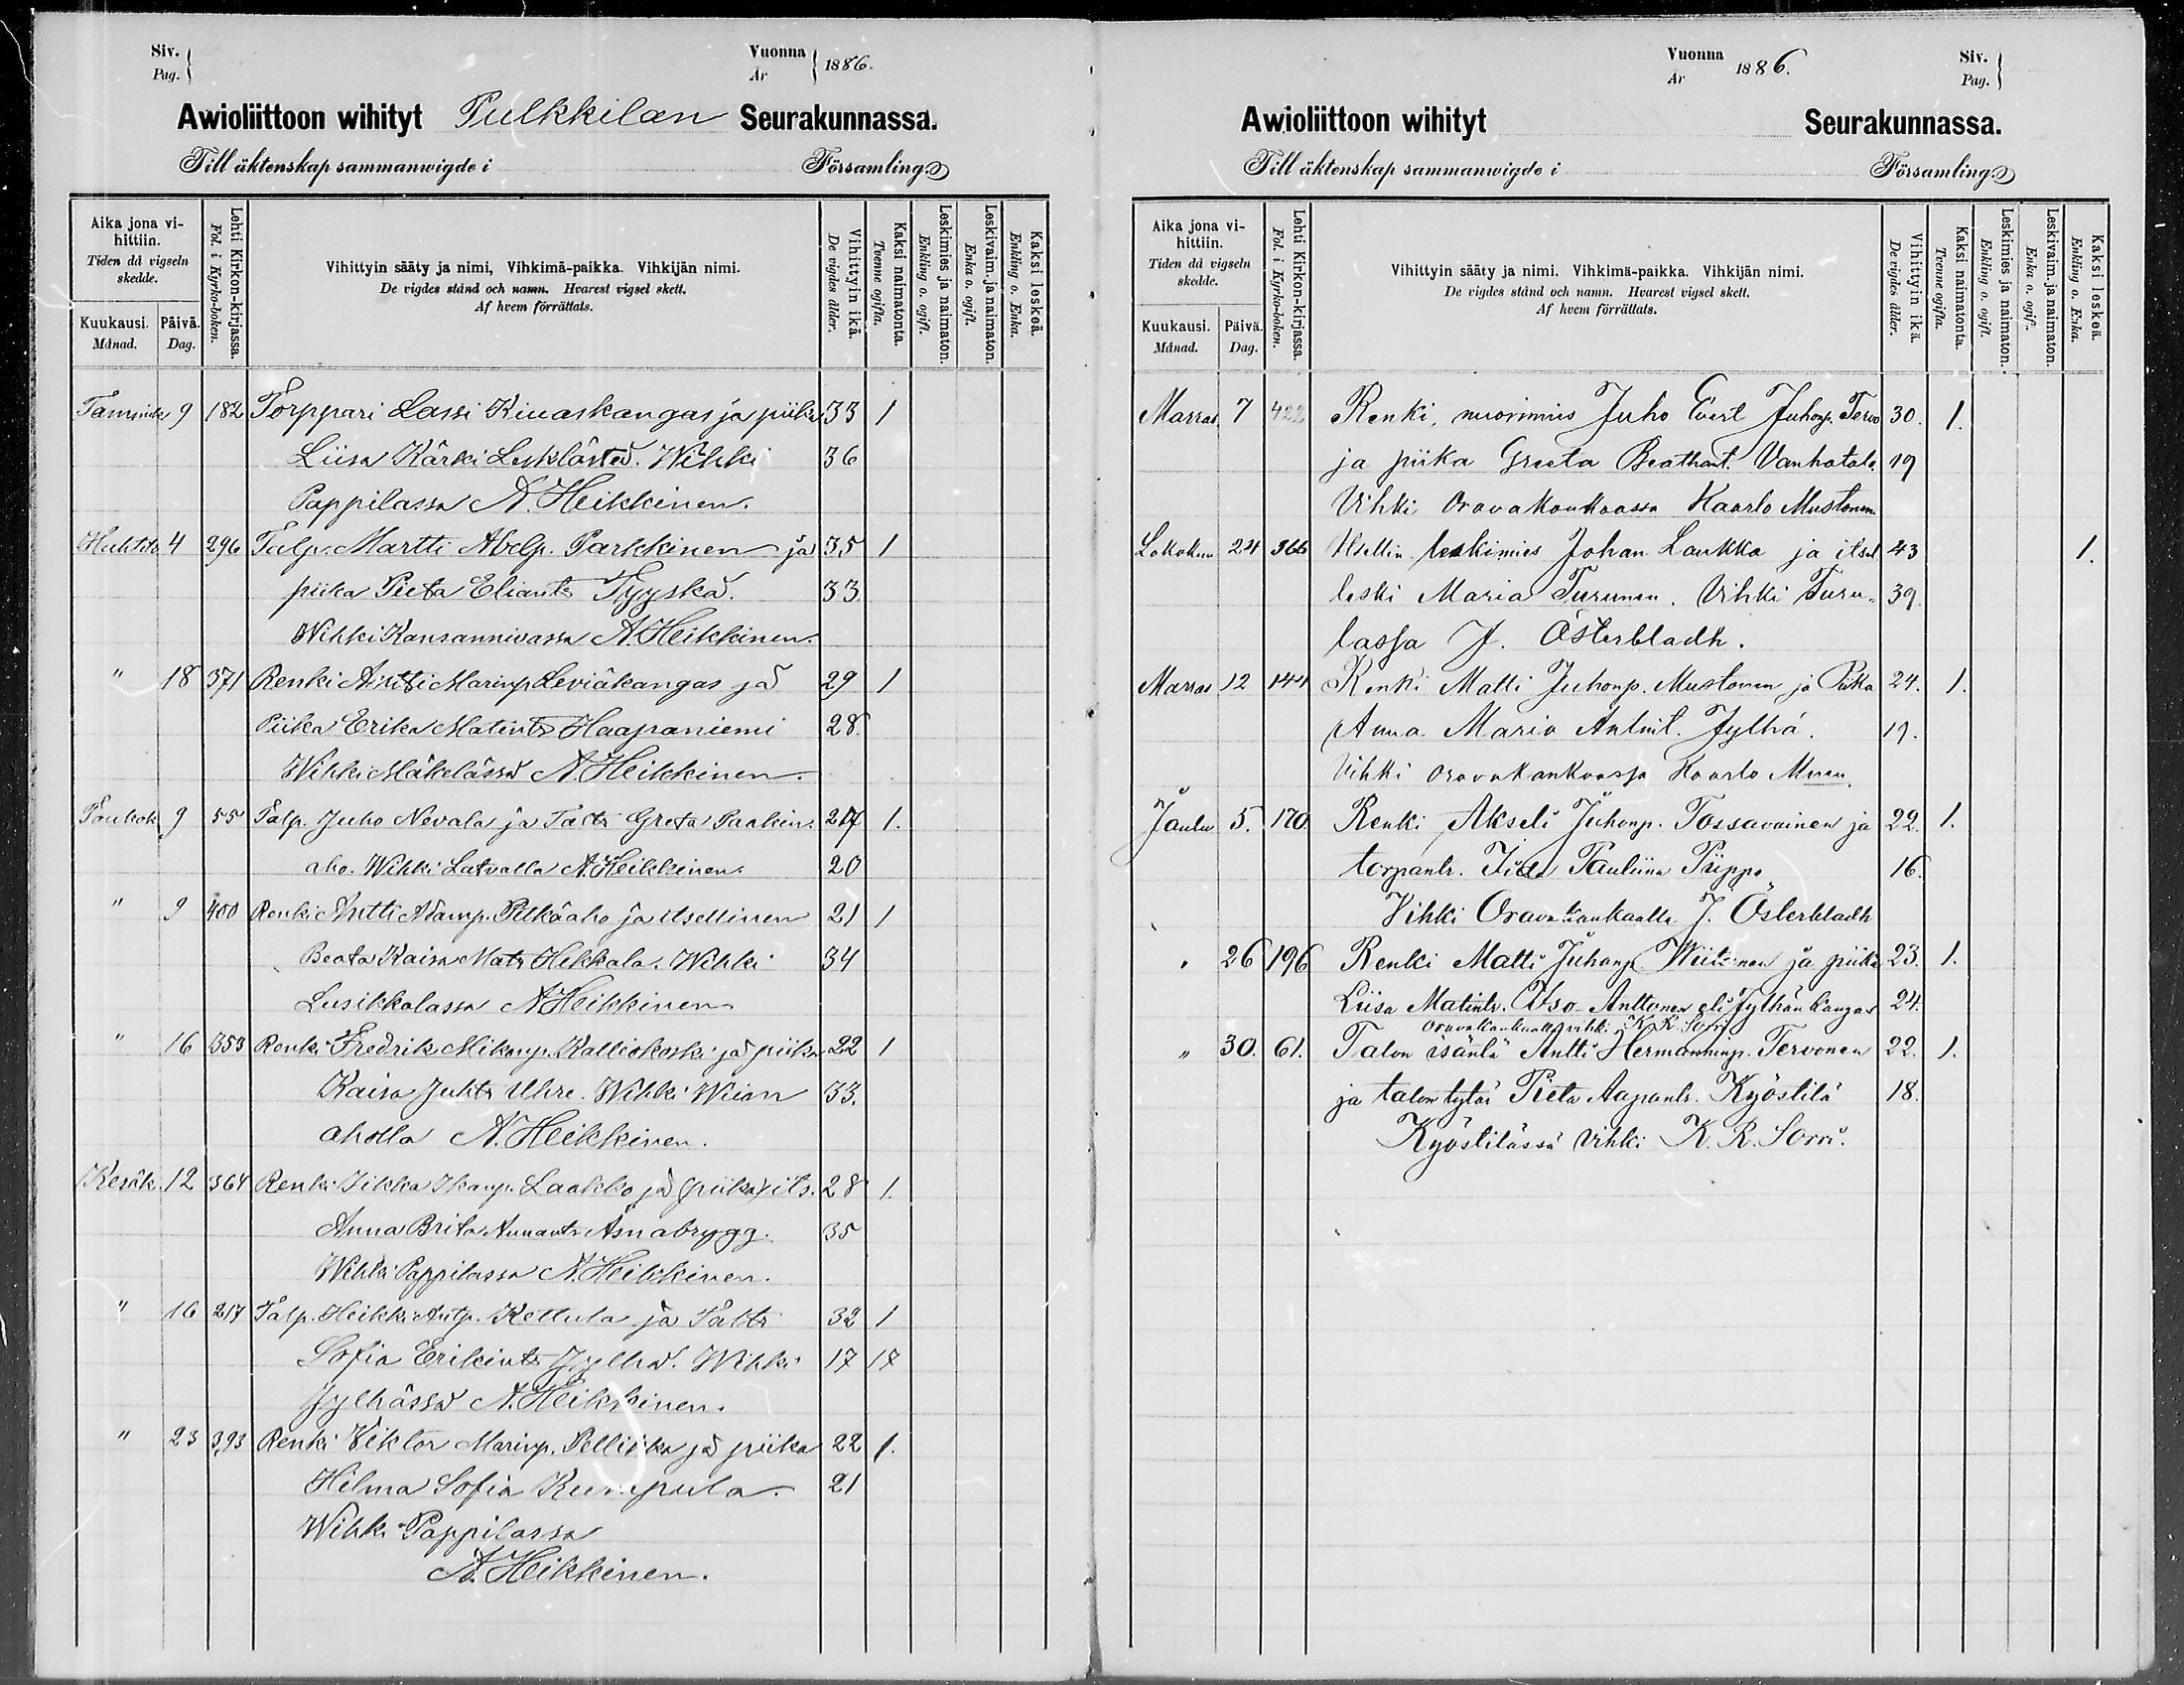 Siv.
Pag.
Vuonna
År
1886.
Awioliittoon wihityt Pulkkilan Seurakunnassa.
Till äktenskap sammanwigde i Församling
Aika jona vihittiin.
Tiden då vigseln skedde.
Kuukausi.
Månad.
Päivä.
Dag.
Lehti Kirkon-kirjassa.
Fol. i Kyrko-boken.
Vihittyin sääty ja nimi, Vihkimä-paikka. Vihkijän nimi.
De vigdes stånd och namn. Hvarest vigsel skett.
Af hvem förrättats.
Vihittyin ikä.
De vigdes ålder.
Kaksi naimatonta.
Tvenne ogifta.
Leskimies ja naimaton.
Enkling o. ogift.
Leskivaim. ja naimaton.
Enka o. ogift.
Kaksi leskeä.
Enkling o. Enka.
9 182 Torppari Lassi Kiuaskangas ja piika 33 1
Liisa Kärki Wihki 36
Pappilassa A. Heikkinen.
4 296 Talp. Martti Abelp. Parkkinen ja 35 1
piika Pieta Eliantr Tyyskä. 33
Wihki Kansannivassa A. Heikkinen.
" 18 371 Renki Antti Marinp Leviäkangas ja 29 1
Piika Erika Matintr Haapaniemi 28.
Wihki Mäkelässä A. Heikkinen.
Toukok 9 55 Talp. Juho Nevala ja Taltr Greta Paakin. 1.
aho. Wihki Latvalla A. Heikkinen. 20
" 9 400 Renki Antti Adamp. Pitkäaho ja itsellinen 21 1
Beata Kaisa Matr Hikkala. Wihki 34
Lusikkalassa A. Heikkinen
" 16 353 Renki Fredrik Mikonp. Kalliokoski ja piika 22 1
Kaisa Juhtr Uhre. Wihki 33.
aholla A. Heikkinen.
Kesäk. 12 364 Renki Laakko ja (piika) its. 28 1.
Anna Brita Åsnabrygg. 35
Wihki Pappilassa A. Heikkinen.
" 16 217 Talp. Heikki Antp. Kettula ja Taltr 32 1
Sofia Erikintr Jylhä. Wihki 17 17
Jylhässä A. Heikkinen.
" 23 393 Renki Viktor Marinp. Pelliikka ja piika 22 1.
Hilma Sofia Kumpula. 21
Wihki Pappilassa
A. Heikkinen.
Vuonna
År
1886.
Siv.
Pag.
Awioliittoon wihityt Seurakunnassa.
Till äktenskap sammanwigde i Församling
Aika jona vihittiin.
Tiden då vigseln skedde.
Kuukausi.
Månad.
Päivä.
Dag.
Lehti Kirkon-kirjassa.
Fol. i Kyrko-boken.
Vihittyin sääty ja nimi. Vihkimä-paikka. Vihkijän nimi.
De vigdes stånd och namn. Hvarest vigsel skett.
Af hvem förrättats.
Vihittyin ikä.
De vigdes ålder.
Kaksi naimatonta.
Tvenne ogifta.
Leskimies ja naimaton.
Enkling o. ogift.
Leskivaim. ja naimaton.
Enka o. ogif.
Kaksi leskeä.
Enkling o. Enka.
Marras 7 422 Renki, nuorimies Juho Evert Juhonp. Tervo 30. 1.
ja piika Greeta Vanhatalo 19
Vihki Oravakankaassa Kaarlo Mustonen
Lokakuu 24 366 Itsellin leskimies Johan Laukka ja itsel. 43 1.
leski Maria Turunen. Vihki Turu- 39.
lassa J. Österbladh.
Marras 12 144 Renki Matti Juhonp. Mustonen ja Piika 24. 1.
Anna Maria Antint. Jylhä. 19.
Vihki Oravakankaassa Kaarlo
Joulu 5. 170. Renki Akseli Juhonp. Tossavainen ja 22. 1.
torpantr. Iida Pauliina Piippo 16.
Vihki Oravakankaalla J. Österbladh
" 26 196 Renki Matti Juhonp. Wiitanen ja piika 23. 1.
Liisa Matintr. Anttonen eli Jylhänkangas 24.
Oravakankaalla vihki K. R. Sorri
" 30. 61. Talon isäntä Antti Hermanninp. Tervonen 22. 1.
ja talon tytär Pieta Aapantr. Kyöstilä 18.
Kyöstilässä vihki K. R. Sorri.